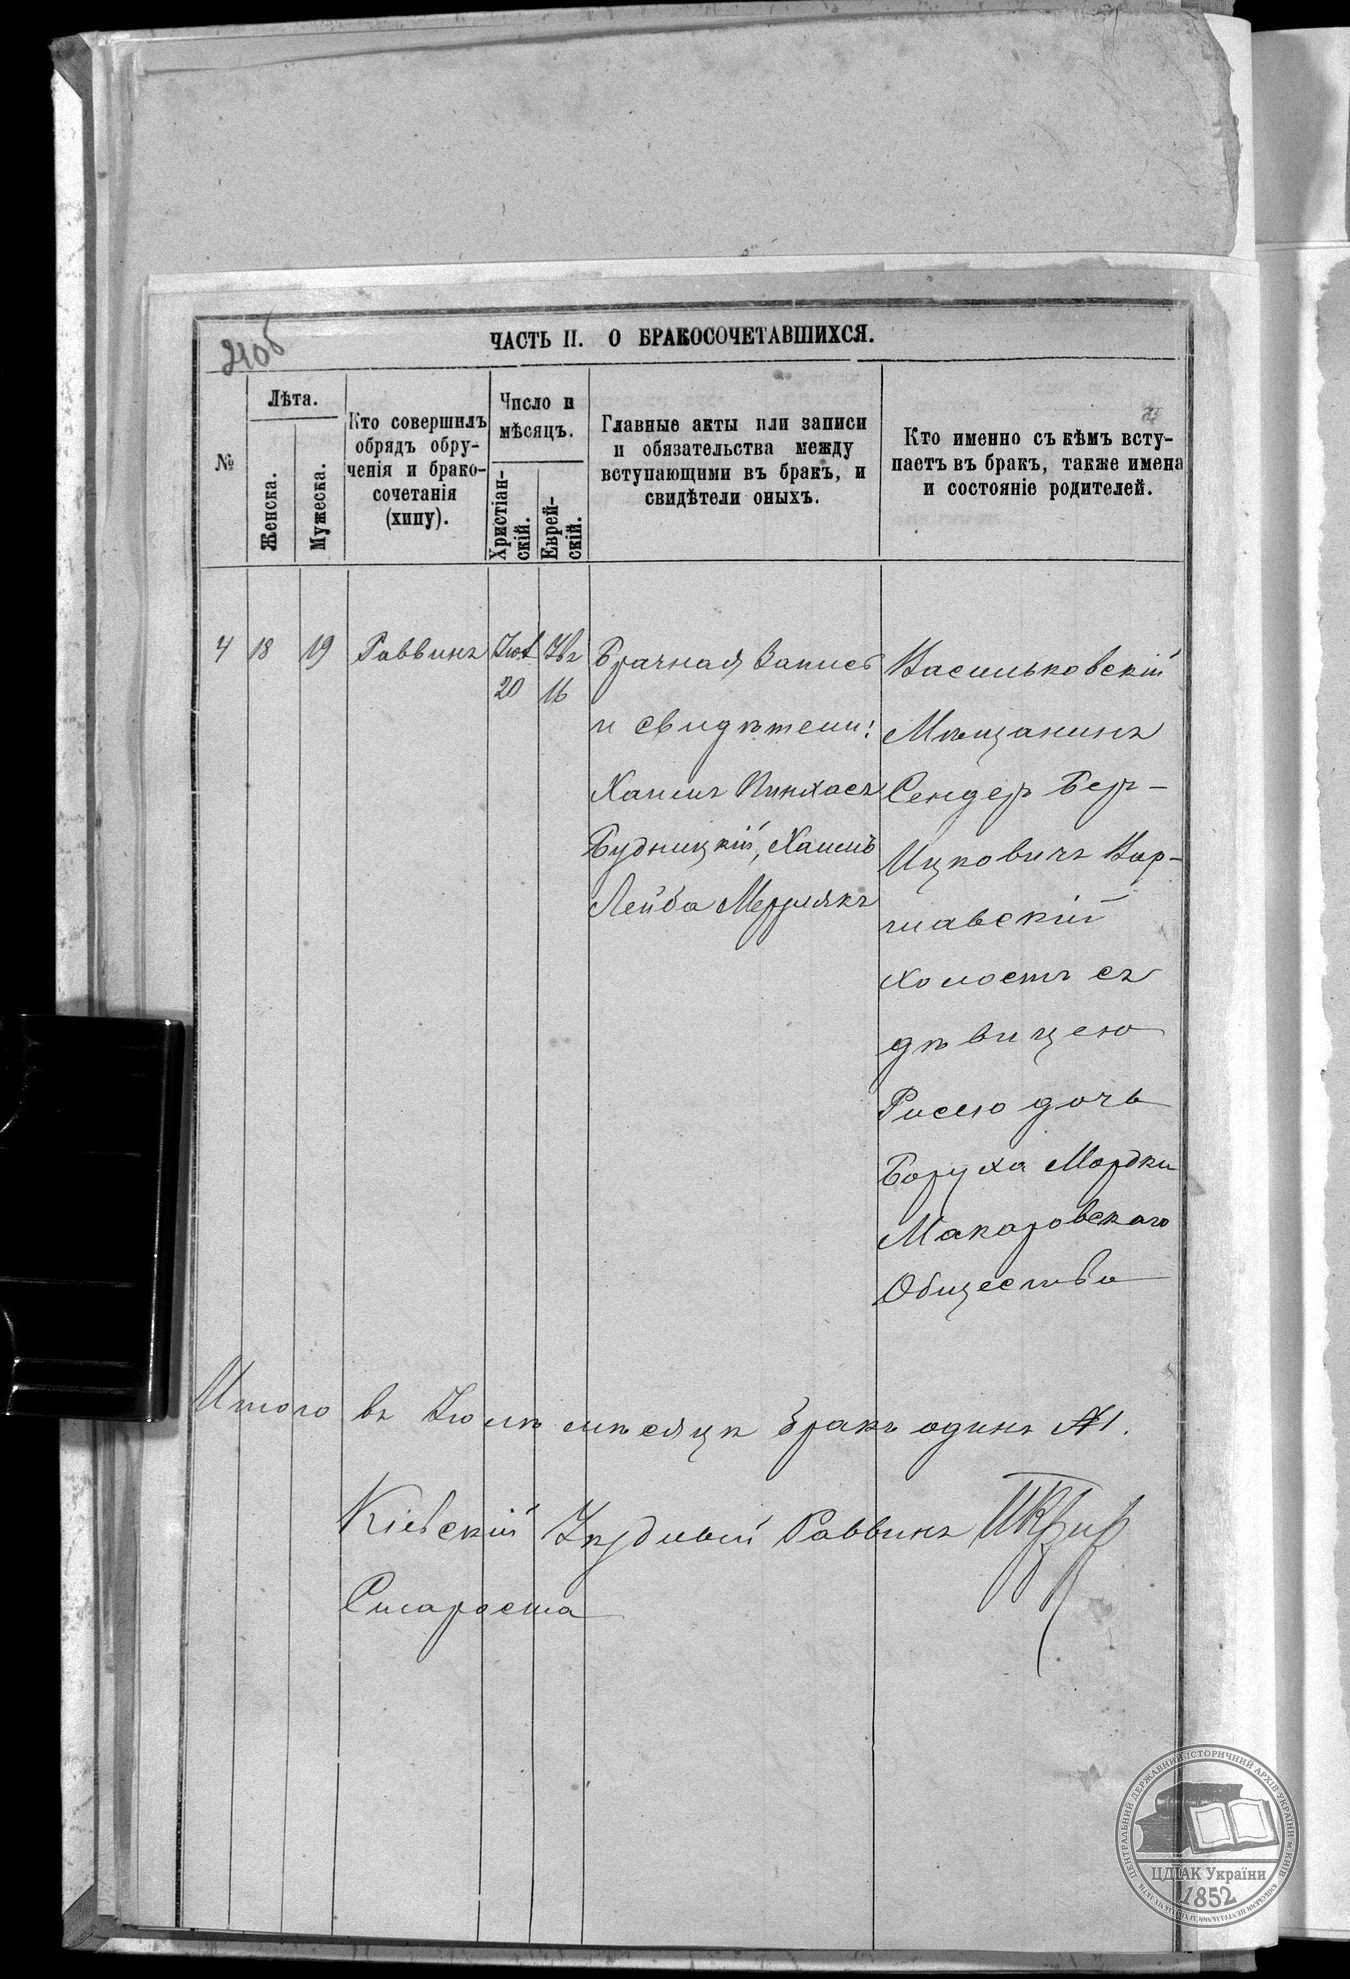 240б
ЧАСТЬ II. О БРАКОСОЧЕТАВШИХСЯ.
№
Лѣта.
Женска.
Мужеска.
Кто совершилъ
обрядъ обру-
ченія и брако-
сочетанія
(хипу).
Число и
мѣсяцъ.
Христіан-
скій.
Еврей-
скій.
Главные акты или записи
и обязательства между
вступающими въ бракъ, и
свидѣтели оныхъ.
Кто именно съ кѣмъ всту-
паетъ въ бракъ, также имена
и состояніе родителей.
4
18
19
Раввинъ
20
16
Брачная Запись
и свидѣтели:
Хаимъ Пинхасъ
Будницкій, Хаимъ
Лейба
Васильковскій
Мѣщанинъ
Сендеръ Бер-
Ицковичъ Вар-
шавскій
холостъ съ
дѣвицею
Рисею дочь
Боруха Мордки
Макаровскаго
Общества
Итого въ Іюлѣ мѣсяцѣ бракъ одинъ №1.
Кіевскій Уѣздный Раввинъ
Староста
ЦЕНТРАЛЬНИЙ ДЕРЖАВНИЙ ІСТОРИЧНИЙ АРХІВ УКРАЇНИ м. КИЇВ
ЦДІАК України
1852